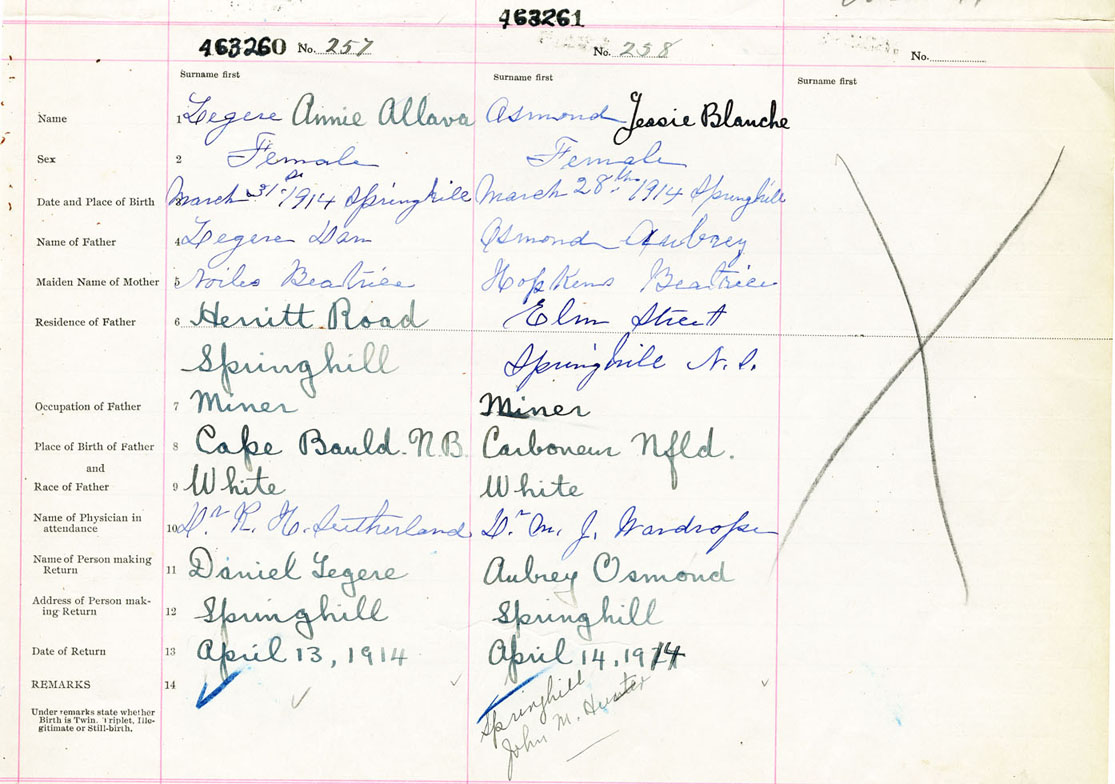 463261
463260 No. 257
No. 258
No.
Surname first
Surname first
Surname first
Name 1 Legere Annie Allava Osmond Jessie Blanche
Sex 2 Female Female
Date and Place of Birth 3 March 31st 1914 Springhill March 28th 1914 Springhill
Name of Father 4 Legere Dan Osmond Aubrey
Maiden Name of Mother 5 Noiles Beatrice Hopkins Beatrice
Residence of Father 6 Herritt Road Elm Street
Springhill Springhill N.S.
Occupation of Father 7 Miner Miner
Place of Birth of Father 8 Cape Bauld. N.B. Carbonear Nfld.
and
Race of Father 9 White White
Name of Physician in
attendance 10 Dr R. H. Sutherland Dr M. J. Wardrope
Name of Person making
Return 11 Daniel Legere Aubrey Osmond
Address of Person mak-
ing Return 12 Springhill Springhill
Date of Return 13 April 13, 1914 April 14, 1914
REMARKS 14
Under remarks state whether
Birth is Twin, Triplet, Ille-
gitimate or Still-birth.
Springhill
John M. Hunter